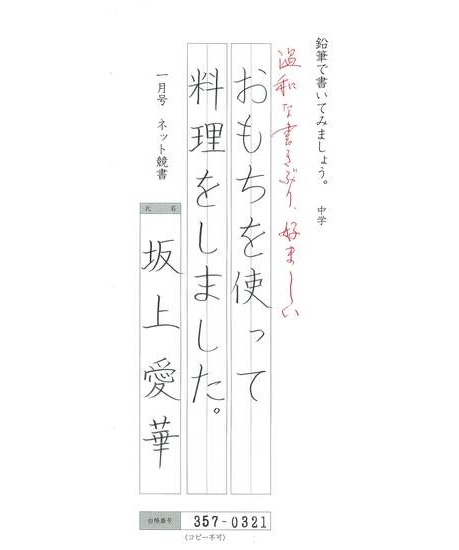 鉛筆で書いてみましょう。 中学
温和な書きぶり、好ましい
おもちを使って
料理をしました。
一月号 ネット競書
氏名
坂上愛華
台帳番号 357-0321
(コピー不可)